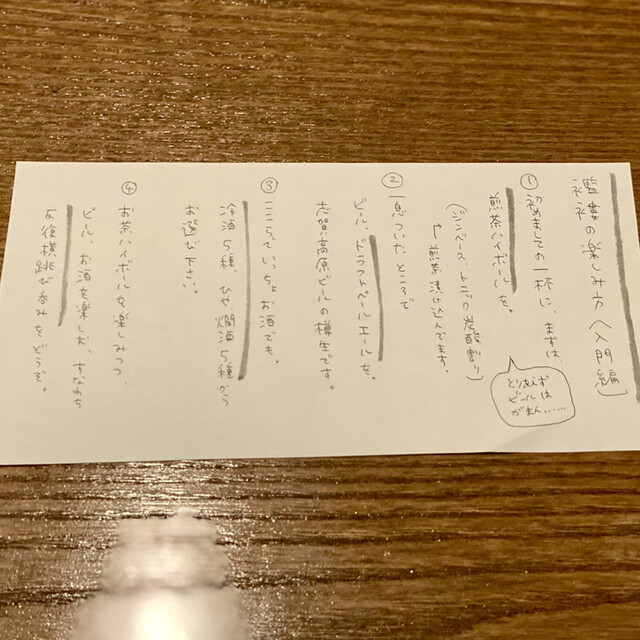 襤褸の楽しみ方〈入門編〉
①初めましての一杯に、まずは、
煎茶ハイボールを。
(ジンベース、トニック炭酸割り)
煎茶漬け込んでます。
とりあえず
ビールは
がまん……
②一息ついたところで
ビール、ドラフトペールエールを。
志賀高原ビールの樽生です。
③ここらでいっちょお酒でも。
冷酒5種、ひや燗酒5種から
お選び下さい。
④お茶ハイボールを楽しみつつ、
ビール、お酒を楽しむ、すなわち
反復横跳び呑みをどうぞ。